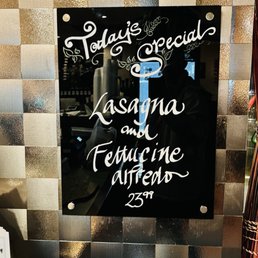 Today's
Special
Lasagna
and
Fettucine
alfredo
23⁹⁹